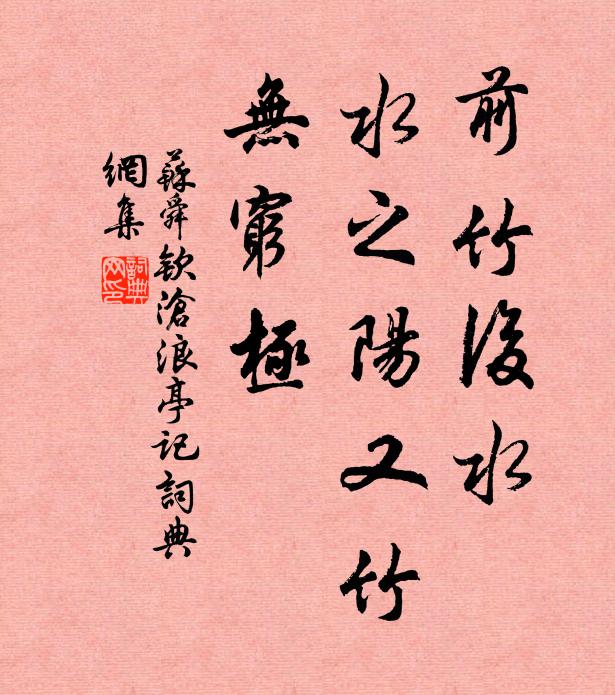 前竹後水
水之陽又竹
無窮極
蘇舜欽滄浪亭記詞典
網集
詞典
网印